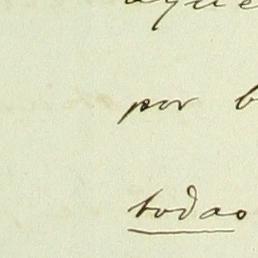 por b
todas